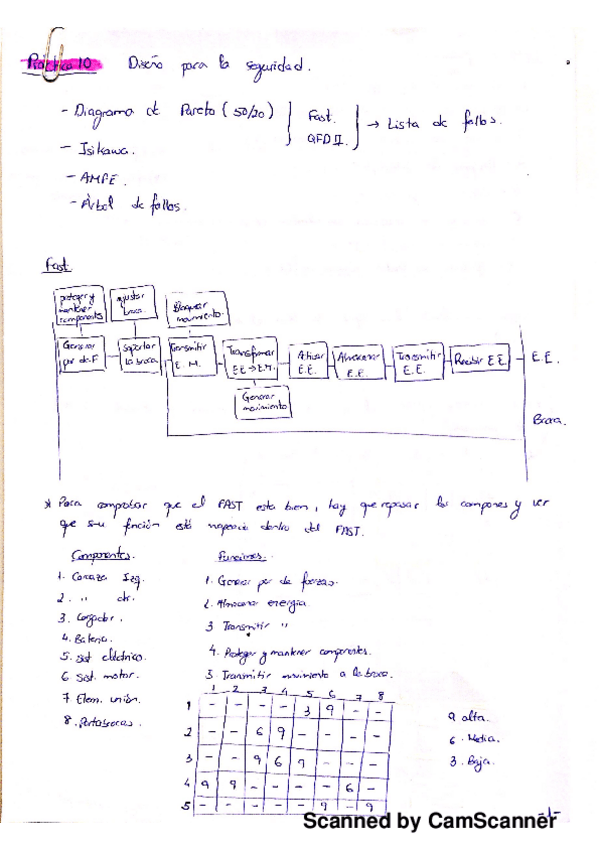 Práctica 10 Diseño para la seguridad.
- Diagrama de Pareto (50/20) Fast. QFD II. → Lista de fallos.
- Isikawa.
- AMFE.
- Árbol de fallos.
Fast.
proteger y mantener componentes
ajustar broca
Bloquear movimiento.
Generar par de F.
Soportar la broca
Transmitir E. M.
Transformar E.E → E.M.
Activar E.E.
Almacenar E.E.
Transmitir E.E.
Recibir E.E.
E.E.
Generar movimiento
Broca.
* Para comprobar que el FAST esta bien, hay que repasar los compones y ver
que su función está dentro del FAST.
Componentes.
1. Carcaza Izq.
2. " dr.
3. Cargador.
4. Batería.
5. Sist eléctrico.
6. Sist. motor.
7 Elem. unión.
8. Portabrocas.
Funciones.
1. Generar par de fuerzas.
2. Almacenar energía
3 Transmitir "
4. Proteger y mantener componentes.
5. Transmitir movimiento a la broca.
1 2 3 4 5 6 7 8
1 - - - - 3 9 - -
2 - - 6 9 - - - -
3 - - 9 6 9 - - -
4 9 9 - - - - 6 -
5 - - - - - 9 - 9
9 alta.
6. Media.
3. Baja.
-1-
Scanned by CamScanner